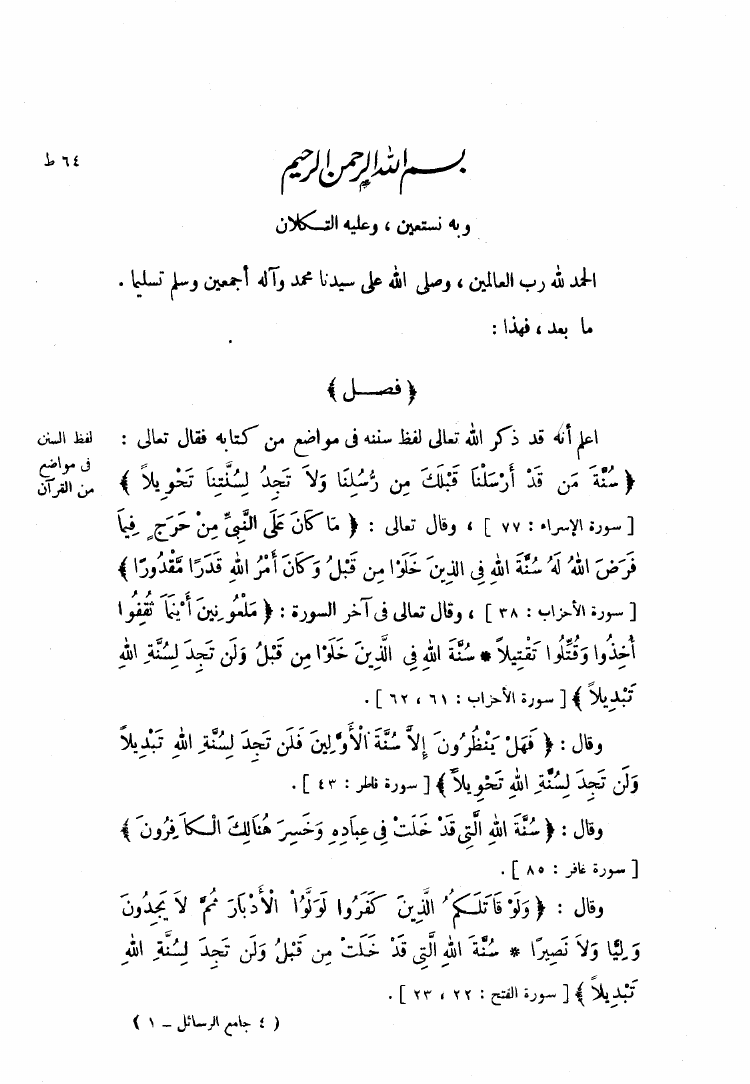 ٦٤ ظ
بسم الله الرحمن الرحيم
وبه نستعين ، وعليه التكلان
الحمد لله رب العالمين ، وصلى الله على سيدنا محمد وآله أجمعين وسلم تسليما .
ما بعد ، فهذا :
﴿ فصل ﴾
اعلم أنه قد ذكر الله تعالى لفظ سننه فى مواضع من كتابه فقال تعالى :
لفظ السنن
فى مواضع
من القرآن
﴿ سُنَّةَ مَن قَدْ أَرْسَلْنَا قَبْلَكَ مِن رُّسُلِنَا وَلاَ تَجِدُ لِسُنَّتِنَا تَحْوِيلاً ﴾
[ سورة الإسراء : ٧٧ ] ، وقال تعالى : ﴿ مَا كَانَ عَلَى النَّبِىِّ مِنْ حَرَجٍ فِيمَا
فَرَضَ اللهُ لَهُ سُنَّةَ اللهِ فِى الذِينَ خَلَوْا مِن قَبْلُ وَكَانَ أَمْرُ اللهِ قَدَرًا مَّقْدُورًا ﴾
[ سورة الأحزاب : ٣٨ ] ، وقال تعالى فى آخر السورة : ﴿ مَلْعُونِينَ أَيْنَمَا ثُقِفُوا
أُخِذُوا وَقُتِّلُوا تَقْتِيلاً * سُنَّةَ اللهِ فِى الَّذِينَ خَلَوْا مِن قَبْلُ وَلَن تَجِدَ لِسُنَّةِ اللهِ
تَبْدِيلاً ﴾ [ سورة الأحزاب : ٦١ ، ٦٢ ] .
وقال : ﴿ فَهَلْ يَنْظُرُونَ إِلاَّ سُنَّةَ الْأَوَّلِينَ فَلَن تَجِدَ لِسُنَّةِ اللهِ تَبْدِيلاً
وَلَن تَجِدَ لِسُنَّةِ اللهِ تَحْوِيلاً ﴾ [ سورة فاطر : ٤٣ ] .
وقال : ﴿ سُنَّةَ اللهِ الَّتِى قَدْ خَلَتْ فِى عِبَادِهِ وَخَسِرَ هُنَالِكَ الْكَافِرُونَ ﴾
[ سورة غافر : ٨٥ ] .
وقال : ﴿ وَلَوْ قَاتَلَكُمُ الَّذِينَ كَفَرُوا لَوَلَّوُا الْأَدْبَارَ ثُمَّ لاَ يَجِدُونَ
وَلِيًّا وَلاَ نَصِيرًا * سُنَّةَ اللهِ الَّتِى قَدْ خَلَتْ مِن قَبْلُ وَلَن تَجِدَ لِسُنَّةِ اللهِ
تَبْدِيلاً ﴾ [ سورة الفتح : ٢٢ ، ٢٣ ] .
( ٤ جامع الرسائل – ١ )